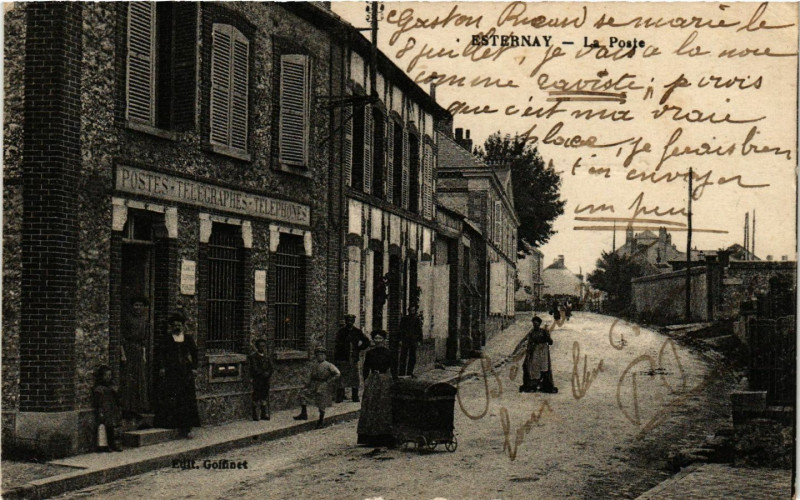 Gaston se marie le
8 juillet, je vais a la noce
comme caviste ; je crois
que c'est ma vraie
place, je vais bien
t'en envoyer
un peu
ESTERNAY - La Poste
POSTES - TELEGRAPHES - TELEPHONES
Edit. Goffinet